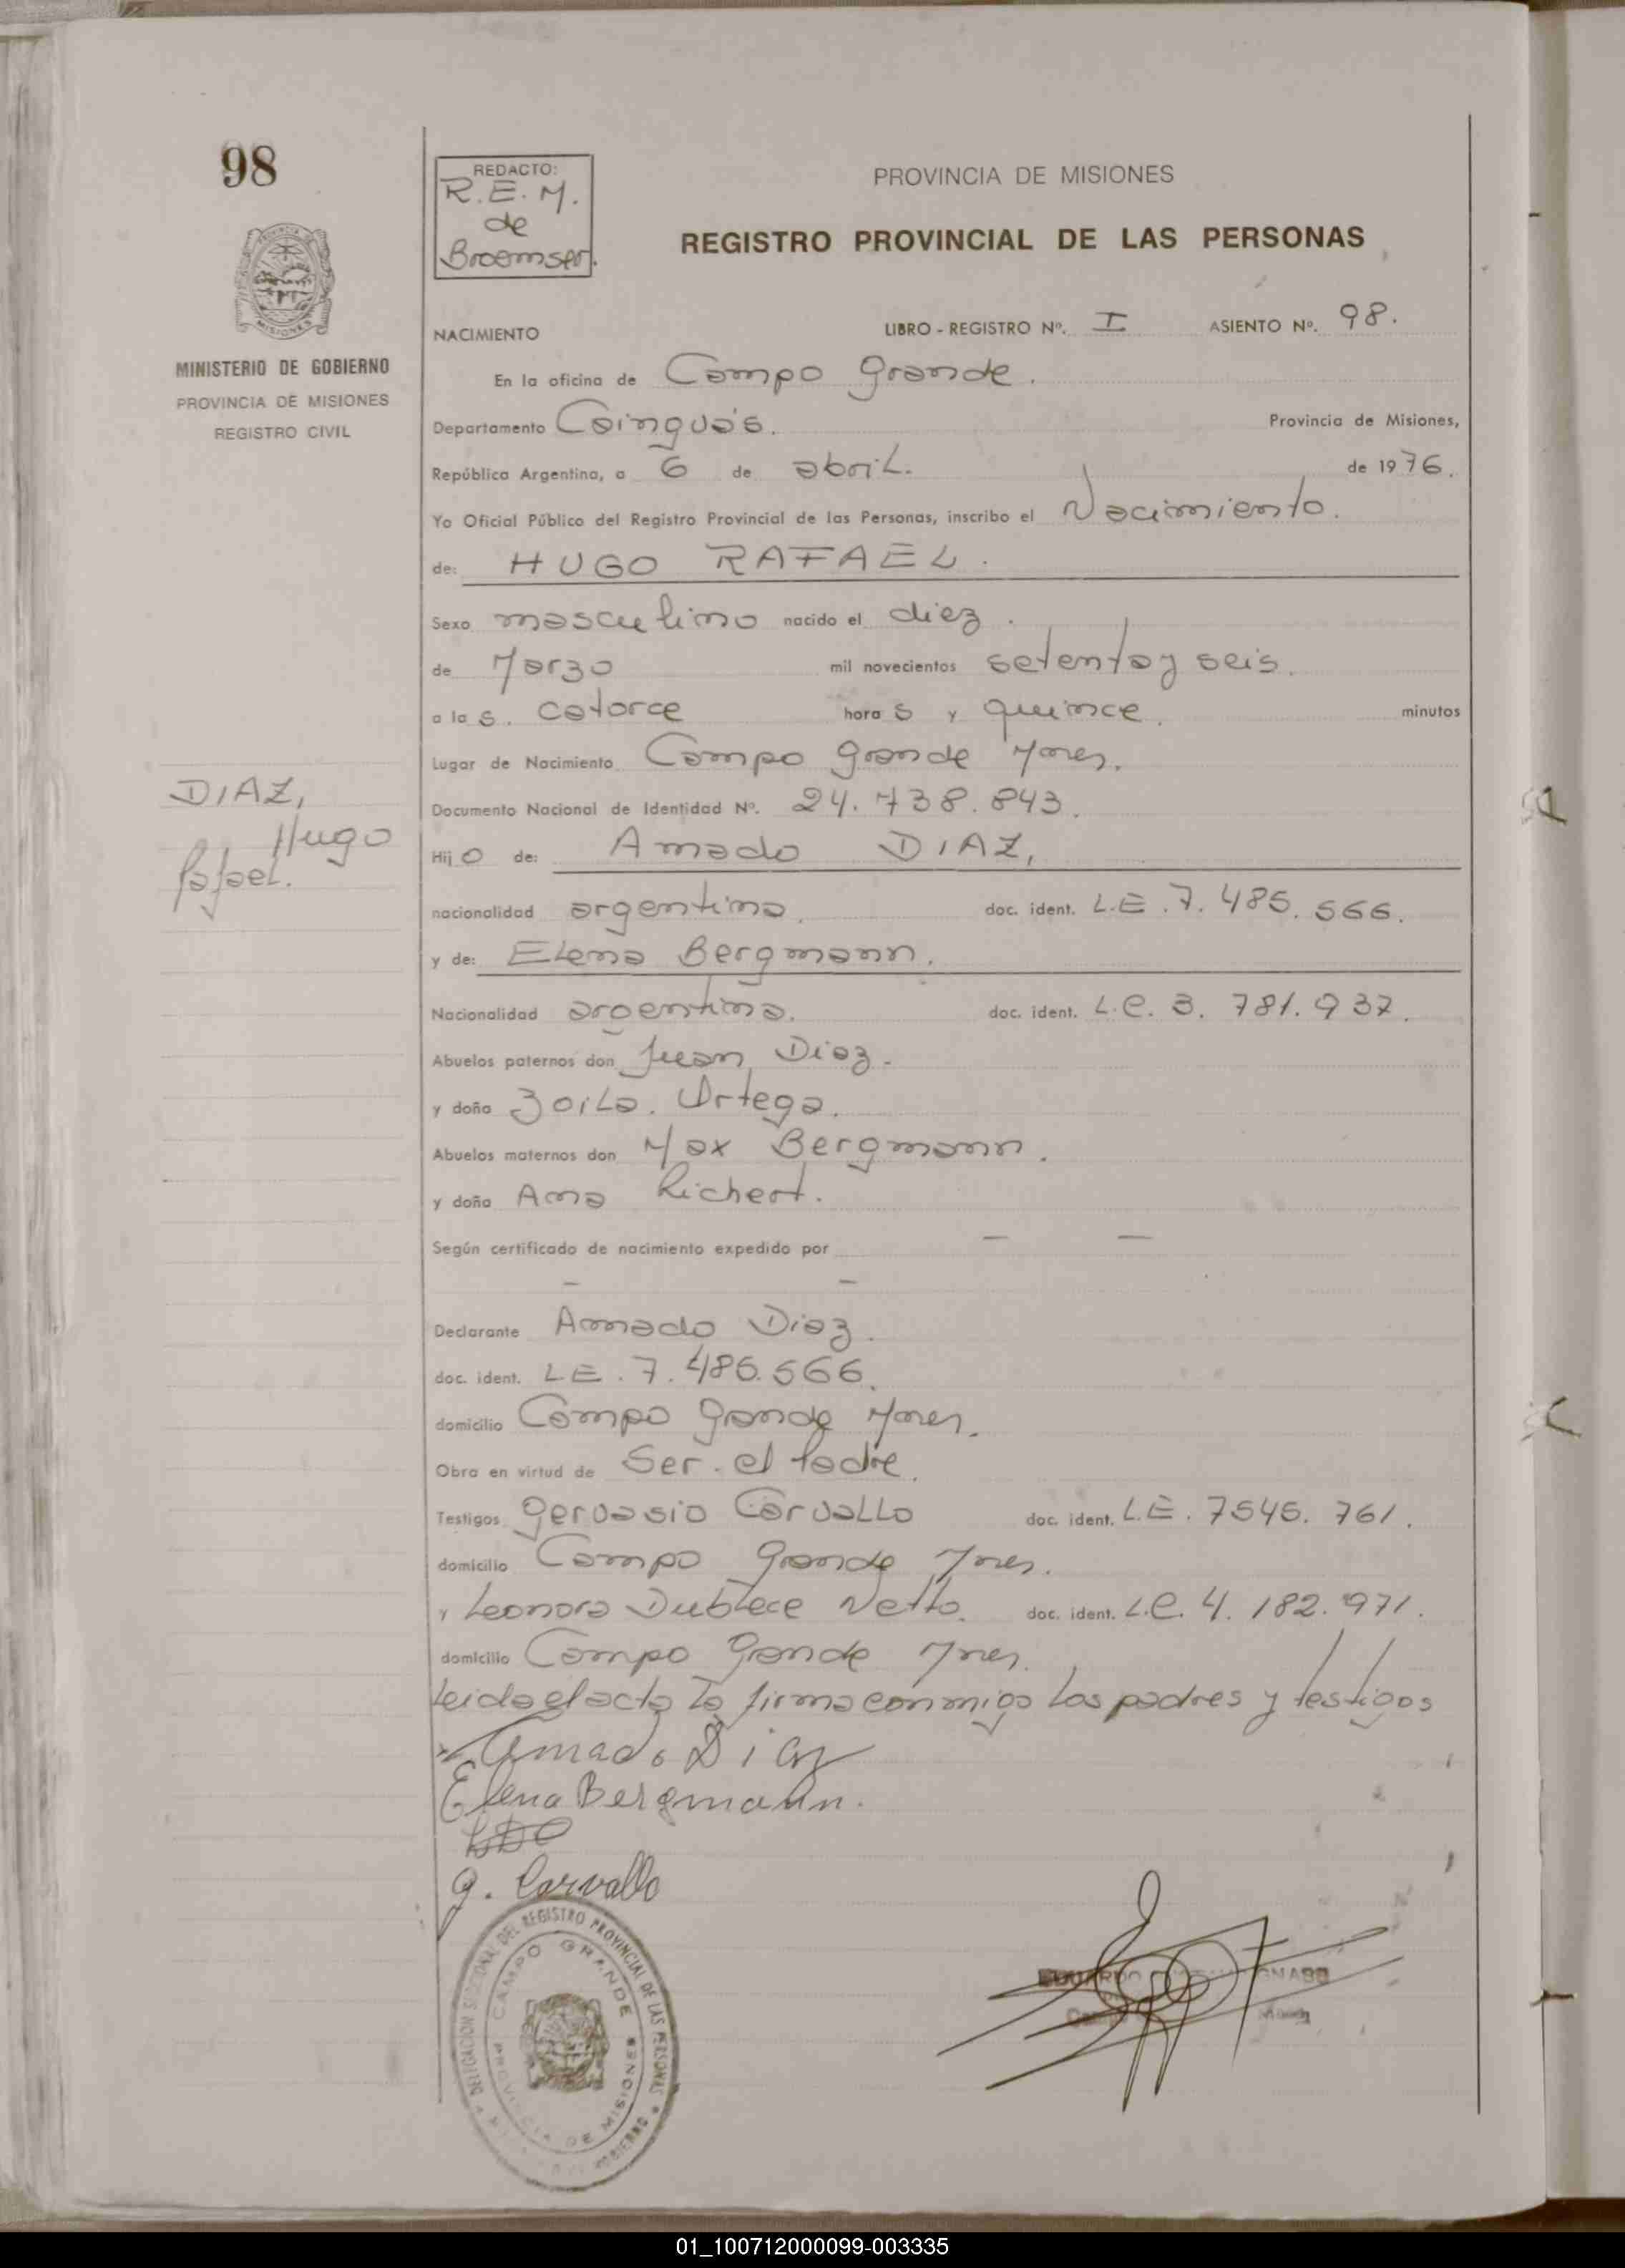 98
REDACTO:
R.E.M.
de
Broemser.
PROVINCIA DE MISIONES
REGISTRO PROVINCIAL DE LAS PERSONAS
MINISTERIO DE GOBIERNO
PROVINCIA DE MISIONES
REGISTRO CIVIL
NACIMIENTO LIBRO - REGISTRO Nº. I ASIENTO Nº. 98.
En la oficina de Campo Grande.
Departamento Cainguás. Provincia de Misiones,
República Argentina, a 6 de abril. de 1976.
Yo Oficial Público del Registro Provincial de las Personas, inscribo el Nacimiento.
de: HUGO RAFAEL.
Sexo masculino nacido el diez.
de Marzo mil novecientos setenta y seis.
a las. catorce horas y quince. minutos
Lugar de Nacimiento Campo Grande Mnes.
Documento Nacional de Identidad Nº. 24.738.843.
DIAZ,
Hugo
Rafael.
Hijo de: Amado DIAZ,
nacionalidad argentina. doc. ident. L.E.7.485.566.
y de: Elena Bergmann.
Nacionalidad argentina. doc. ident. L.C. 3.781.937.
Abuelos paternos don Juan Diaz.
y doña Zoila. Ortega.
Abuelos maternos don Max Bergmann.
y doña Ana Richert.
Según certificado de nacimiento expedido por — —
— —
Declarante Amado Diaz.
doc. ident. LE. 7.485.566.
domicilio Campo Grande Mnes.
Obra en virtud de Ser. el Padre.
Testigos Gervasio Carvallo doc. ident. L.E. 7545.761.
domicilio Campo Grande Mnes.
y Leonora Netto. doc. ident. L.C. 4.182.971.
domicilio Campo Grande Mnes.
Leida el acta la firma conmigo los padres y testigos
Amado Diaz
Elena Bergmann.
G. Carvallo
DELEGACION SECCIONAL DEL REGISTRO PROVINCIAL DE LAS PERSONAS
CAMPO GRANDE
PROVINCIA DE MISIONES
EDUARDO
01_100712000099-003335